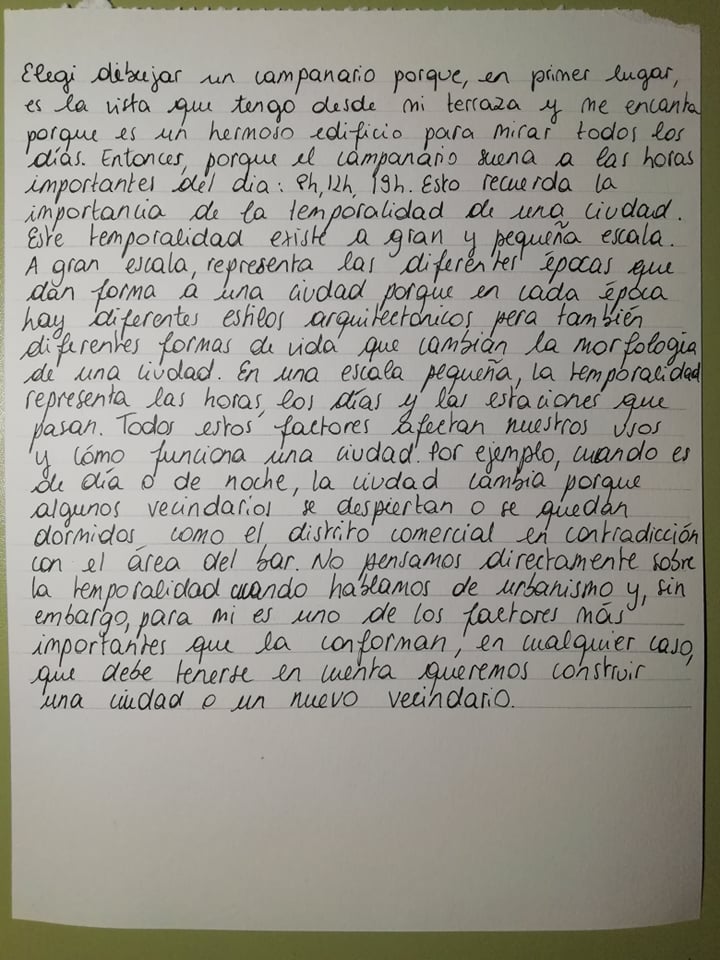 Elegi dibujar un campanario porque, en primer lugar,
es la vista que tengo desde mi terraza y me encanta
porque es un hermoso edificio para mirar todos los
días. Entonces, porque el campanario suena a las horas
importantes del dia: 8h, 12h, 19h. Esto recuerda la
importancia de la temporalidad de una ciudad.
Este temporalidad existe a gran y pequeña escala.
A gran escala, representa las diferentes épocas que
dan forma a una ciudad porque en cada época
hay diferentes estilos arquitectonicos, pera también
diferentes formas de vida que cambian la morfologia
de una ciudad. En una escala pequeña, la temporalidad
representa las horas, los días y las estaciones que
pasan. Todos estos factores afectan nuestros usos
y cómo funciona una ciudad. Por ejemplo, cuando es
de día o de noche, la ciudad cambia porque
algunos vecindarios se despiertan o se quedan
dormidos, como el distrito comercial en contradicción
con el área del bar. No pensamos directamente sobre
la temporalidad cuando hablamos de urbanismo y, sin
embargo, para mi es uno de los factores más
importantes que la conforman, en cualquier caso,
que debe tenerse en cuenta queremos construir
una ciudad o un nuevo vecindario.